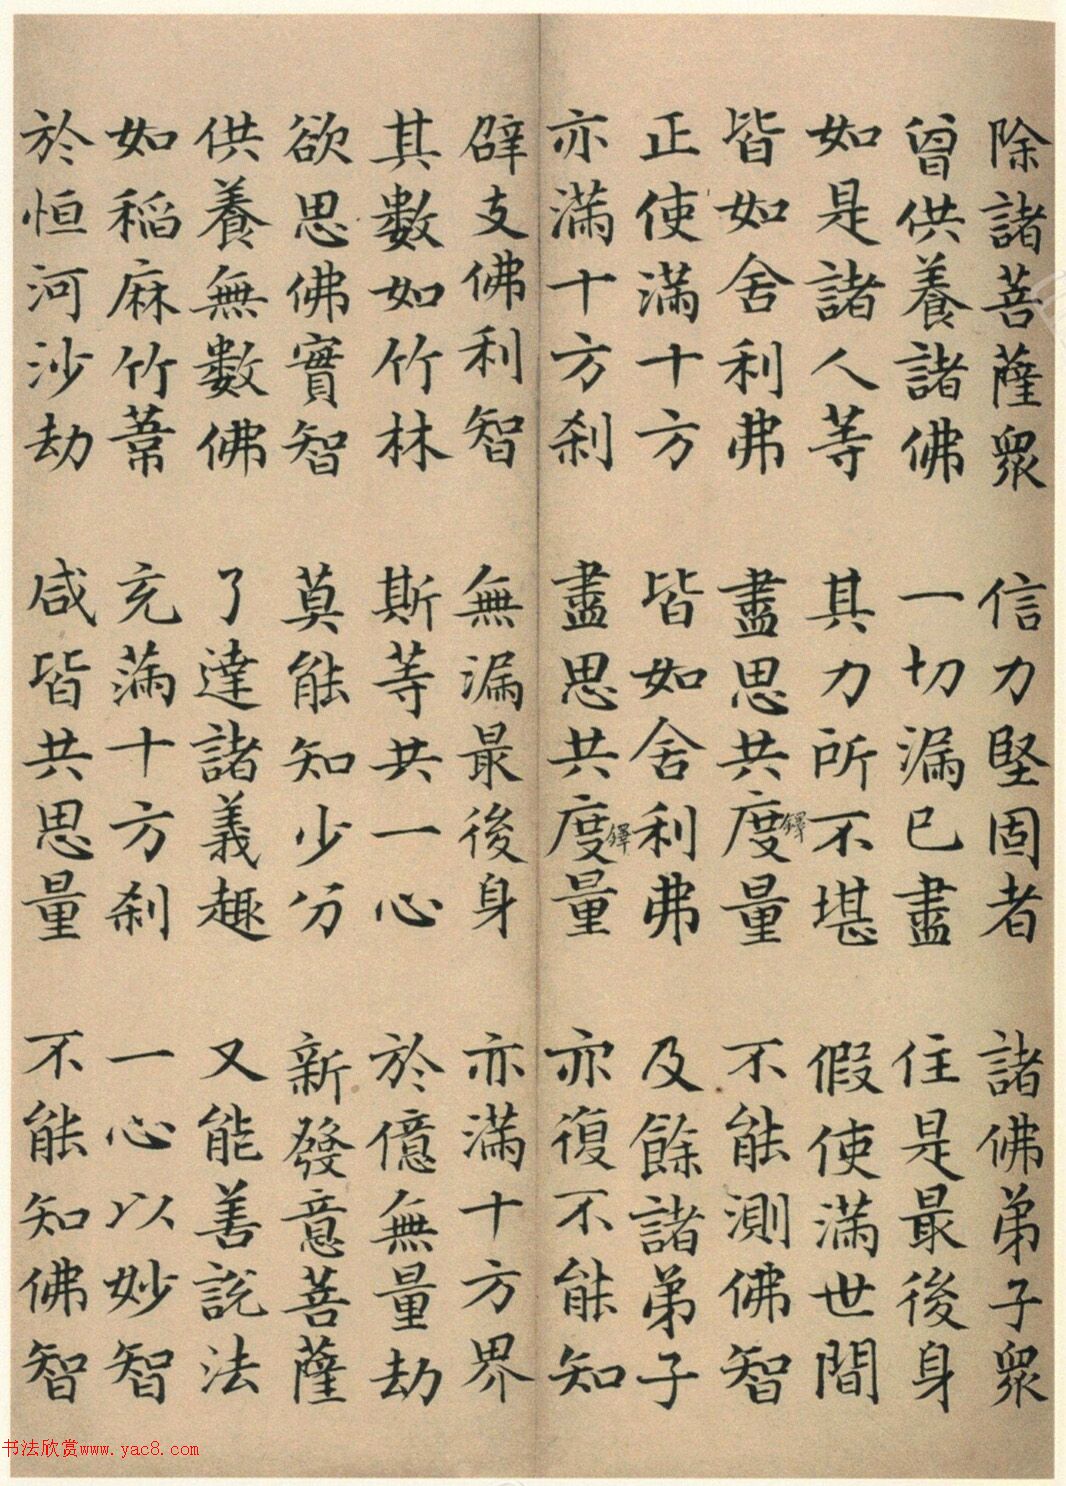 除諸菩薩衆 信力堅固者 諸佛弟子衆
曾供養諸佛 一切漏已盡 住是最後身
如是諸人等 其力所不堪 假使滿世間
皆如舍利弗 盡思共度鐸量 不能測佛智
正使滿十方 皆如舍利弗 及餘諸弟子
亦滿十方刹 盡思共度鐸量 亦復不能知
辟支佛利智 無漏最後身 亦滿十方界
其數如竹林 斯等共一心 於億無量劫
欲思佛實智 莫能知少分 新發意菩薩
供養無數佛 了達諸義趣 又能善說法
如稻麻竹葦 充滿十方刹 一心以妙智
於恒河沙劫 咸皆共思量 不能知佛智
书法欣赏www.yac8.com